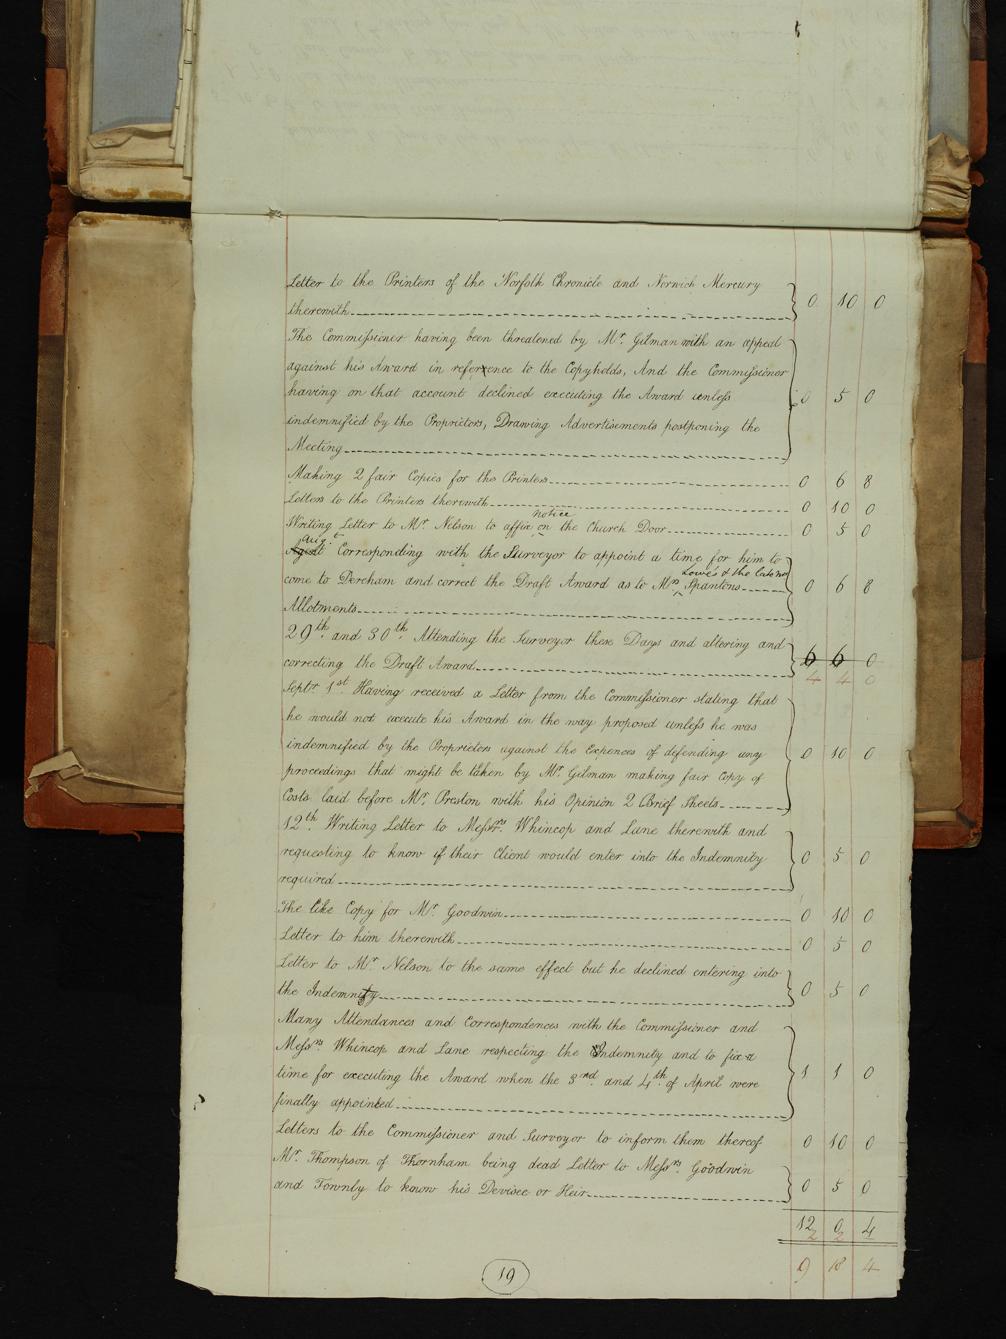 Letter to the Printers of the Norfolk Chronicle and Norwich Mercury
therewith 0 10 0
The Commissioner having been threatened by Mr. Gilman with an appeal
against his Award in reference to the Copyholds, And the Commissioner
having on that account declined executing the Award unless 0 5 0
indemnified by the Proprietors, Drawing Advertisements postponing the
Meeting
Making 2 fair Copies for the Printers 0 6 8
Letters to the Printers therewith 0 10 0
notice
Writing Letter to Mr. Nelson to affix on the Church Door 0 5 0
Augt.
Corresponding with the Surveyor to appoint a time for him to
Lowe's & the late
come to Dereham and correct the Draft Award as to Mrs. Spantons 0 6 8
Allotments
29th. and 30th. Attending the Surveyor these Days and altering and
correcting the Draft Award 6 6 0
4 4 0
Septr. 1st. Having received a Letter from the Commissioner stating that
he would not execute his Award in the way proposed unless he was
indemnified by the Proprietors against the Expences of defending any 0 10 0
proceedings that might be taken by Mr. Gilman making fair Copy of
Costs laid before Mr. Preston with his Opinion 2 Brief Sheets
12th. Writing Letter to Messrs. Whincop and Lane therewith and
requesting to know if their Client would enter into the Indemnity 0 5 0
required
The like Copy for Mr. Goodwin 0 10 0
Letter to him therewith 0 5 0
Letter to Mr. Nelson to the same effect but he declined entering into
the Indemnity 0 5 0
Many Attendances and Correspondences with the Commissioner and
Messrs. Whincop and Lane respecting the Indemnity and to fix a
time for executing the Award when the 3rd. and 4th. of April were 1 1 0
finally appointed
Letters to the Commissioner and Surveyor to inform them thereof 0 10 0
Mr. Thompson of Thornham being dead Letter to Messrs. Goodwin
and Townly to know his Devisee or Heir 0 5 0
12 0 4
2 2
9 18 4
19